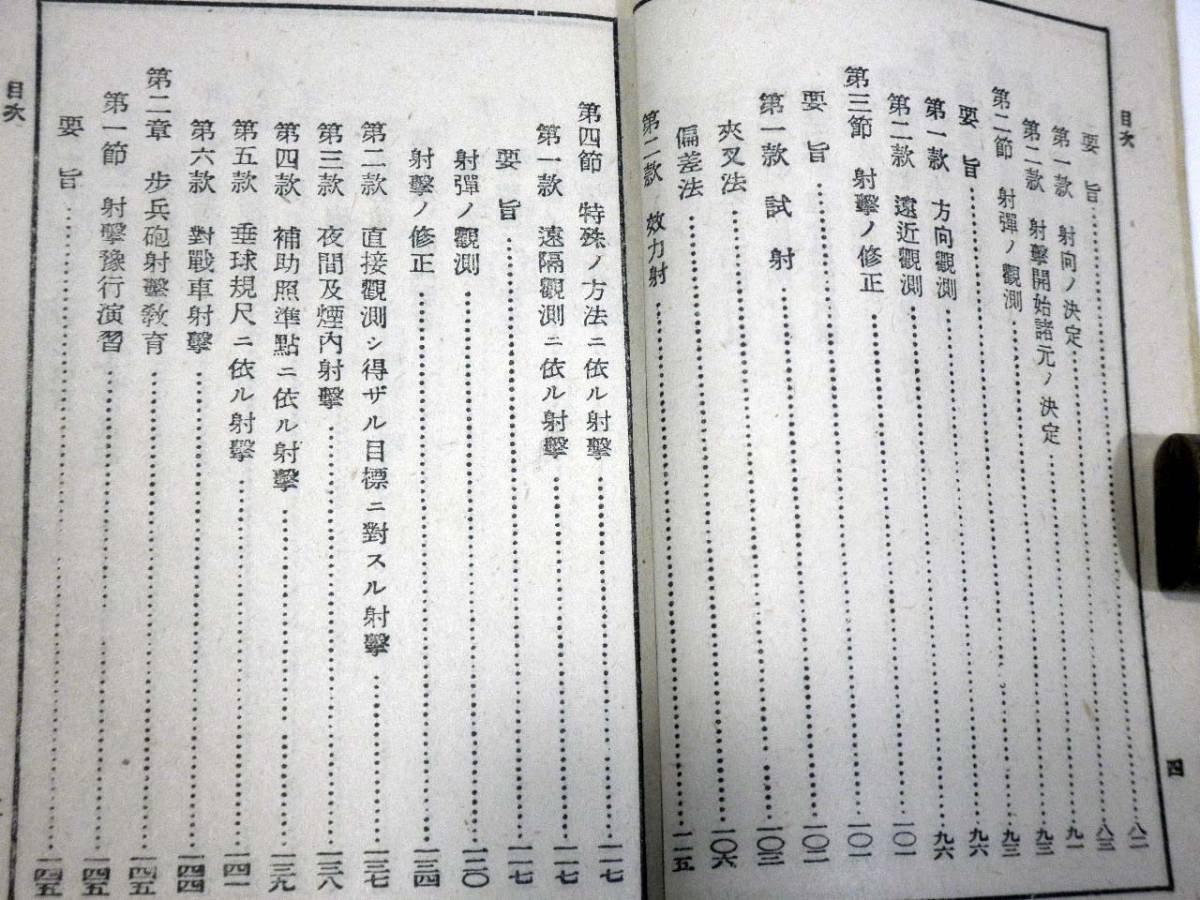 目次
要旨……八二
第一款 射向ノ決定……八三
第二款 射擊開始諸元ノ決定……九一
第二節 射彈ノ觀測……九三
要旨……九三
第一款 方向觀測……九六
第二款 遠近觀測……九六
第三節 射擊ノ修正……一〇一
要旨……一〇一
第一款 試射……一〇二
夾叉法……一〇三
偏差法……一〇六
第二款 效力射……一一五
四
第四節 特殊ノ方法ニ依ル射擊……一一七
第一款 遠隔觀測ニ依ル射擊……一一七
要旨……一一七
射彈ノ觀測……一二〇
射擊ノ修正……一三四
第二款 直接觀測シ得ザル目標ニ對スル射擊……一三七
第三款 夜間及煙內射擊……一三八
第四款 補助照準點ニ依ル射擊……一三九
第五款 垂球規尺ニ依ル射擊……一四一
第六款 對戰車射擊……一四四
第二章 步兵砲射擊敎育……一四五
第一節 射擊豫行演習……一四五
要旨……一四五
目次